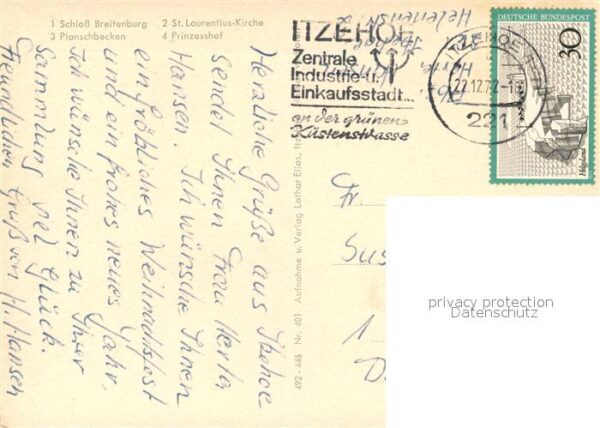 1 Schloß Breitenburg 2 St. Laurentius-Kirche
3 Planschbecken 4 Prinzesshof
Herzliche Grüße aus Itzehoe
sendet Ihnen Frau Herta
Hansen. Ich wünsche Ihnen
ein fröhliches Weihnachtsfest
und ein frohes neues Jahr,
Ich wünsche Ihnen zu Ihrer
Sammlung viel Glück.
Freundlichen Gruß von H. Hansen
492-446 Nr. 401 Aufnahme u. Verlag Lothar Elias,
ITZEHOE
Zentrale
Industrie- u.
Einkaufsstadt...
an der grünen
Küstenstrasse
22.12.72
221
DEUTSCHE BUNDESPOST
30
Helgoland
Fr.
Sus
1
D
privacy protection
Datenschutz